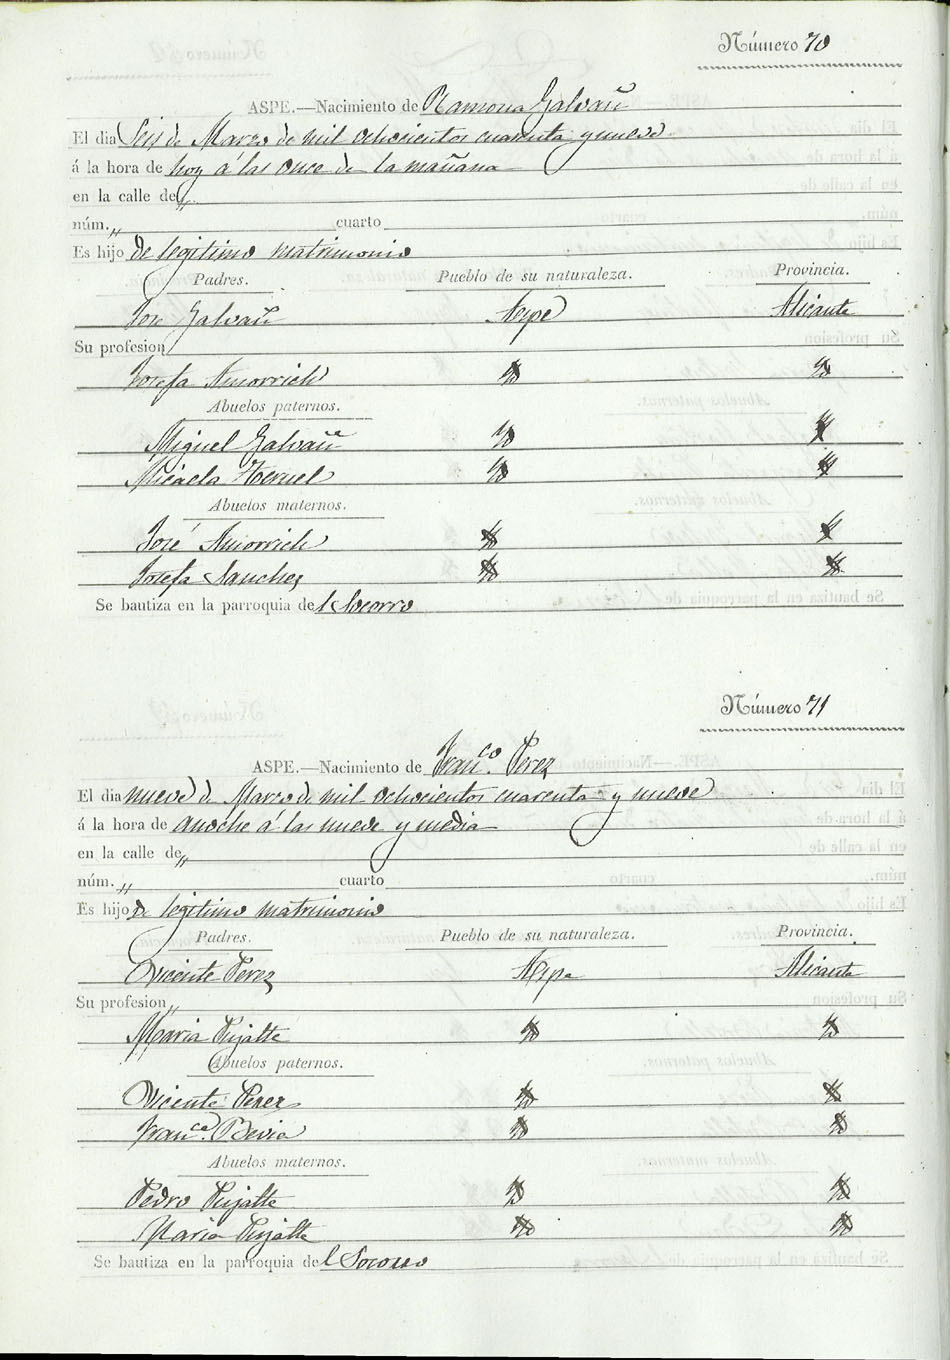 Número 70
ASPE.—Nacimiento de Ramona Galvañ
El dia Seis de Marzo de mil ochocientos cuarenta y nueve
á la hora de hoy á las once de la mañana
en la calle de „
núm. „ cuarto
Es hijo de legitimo matrimonio
Padres. Pueblo de su naturaleza. Provincia.
José Galvañ Aspe Alicante
Su profesion
Josefa Amorrich
Abuelos paternos.
Miguel Galvañ
Micaela
Abuelos maternos.
José Amorrich
Josefa Sanchez
Se bautiza en la parroquia del Socorro
Número 71
ASPE.—Nacimiento de Franco. Perez
El dia nueve de Marzo de mil ochocientos cuarenta y nueve
á la hora de anoche á las nueve y media
en la calle de „
núm. „ cuarto
Es hijo de legitimo matrimonio
Padres. Pueblo de su naturaleza. Provincia.
Vicente Perez Aspe Alicante
Su profesion „
Maria Pujalte
Abuelos paternos.
Vicente Perez
Franca. Bevia
Abuelos maternos.
Pedro Pujalte
Maria Pujalte
Se bautiza en la parroquia del Socorro